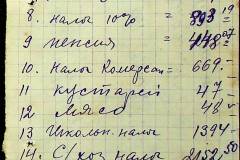 8. налог 10ср = 893 19
9 пенсия = 448 07
10. Налог Комерсан = 669.-
11 кустарей 47 -
12 мясо 48 -
13 Школьн. налог 1394 -
14. С/хоз налог 2152,50